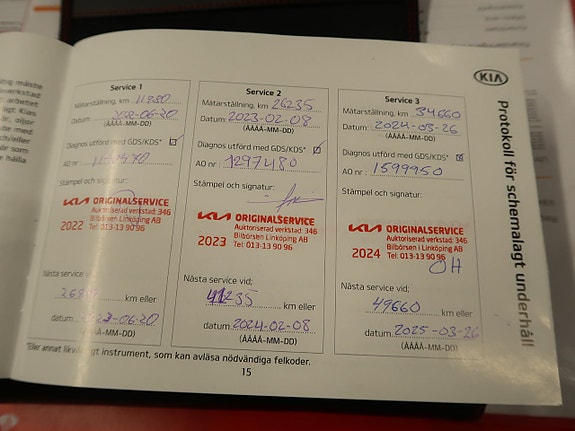 KIA
Protokoll för schemalagt underhåll
Service 1
Mätarställning, km 11980
Datum: 2022-06-20
(ÅÅÅÅ-MM-DD)
Diagnos utförd med GDS/KDS*
AO nr:
Stämpel och signatur:
KIA ORIGINALSERVICE
Auktoriserad verkstad: 346
Bilbörsen Linköping AB
2022 Tel: 013-13 90 96
Nästa service vid;
km eller
datum 2023-06-20
(ÅÅÅÅ-MM-DD)
Service 2
Mätarställning, km 26235
Datum: 2023-02-08
(ÅÅÅÅ-MM-DD)
Diagnos utförd med GDS/KDS*
AO nr: 1297480
Stämpel och signatur:
KIA ORIGINALSERVICE
Auktoriserad verkstad: 346
Bilbörsen Linköping AB
2023 Tel: 013-13 90 96
Nästa service vid;
41235 km eller
datum 2024-02-08
(ÅÅÅÅ-MM-DD)
Service 3
Mätarställning, km 34660
Datum: 2024-03-26
(ÅÅÅÅ-MM-DD)
Diagnos utförd med GDS/KDS*
AO nr: 1599950
Stämpel och signatur:
KIA ORIGINALSERVICE
Auktoriserad verkstad: 346
Bilbörsen i Linköping AB
2024 Tel: 013-13 90 96
OH
Nästa service vid;
49660 km eller
datum 2025-03-26
(ÅÅÅÅ-MM-DD)
*Eller annat likvärdigt instrument, som kan avläsa nödvändiga felkoder.
15